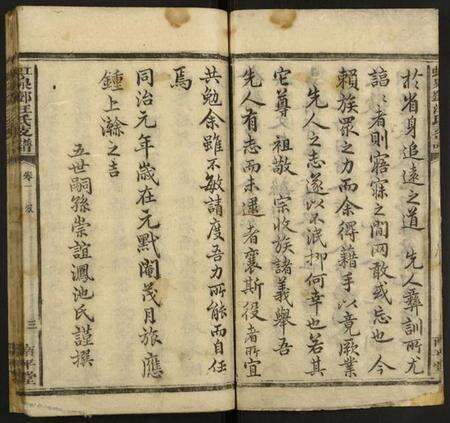 於省身追遠之道 先人彝訓所尤
諄諄者則寤寐之間罔敢或忘也 今
賴族眾之力而余得藉手以竟厥業
先人之志遂以不泯抑何幸也若其
它尊 祖敬 宗收族諸義舉吾
先人有志而未逮者襄斯役者所宜
共勉余雖不敏請度吾力所能而自任
焉
同治元年歲在元黓閹茂月旅應
鍾上澣之吉
五世嗣孫崇誼鳳池氏謹撰
鄉 氏支譜
卷一
三